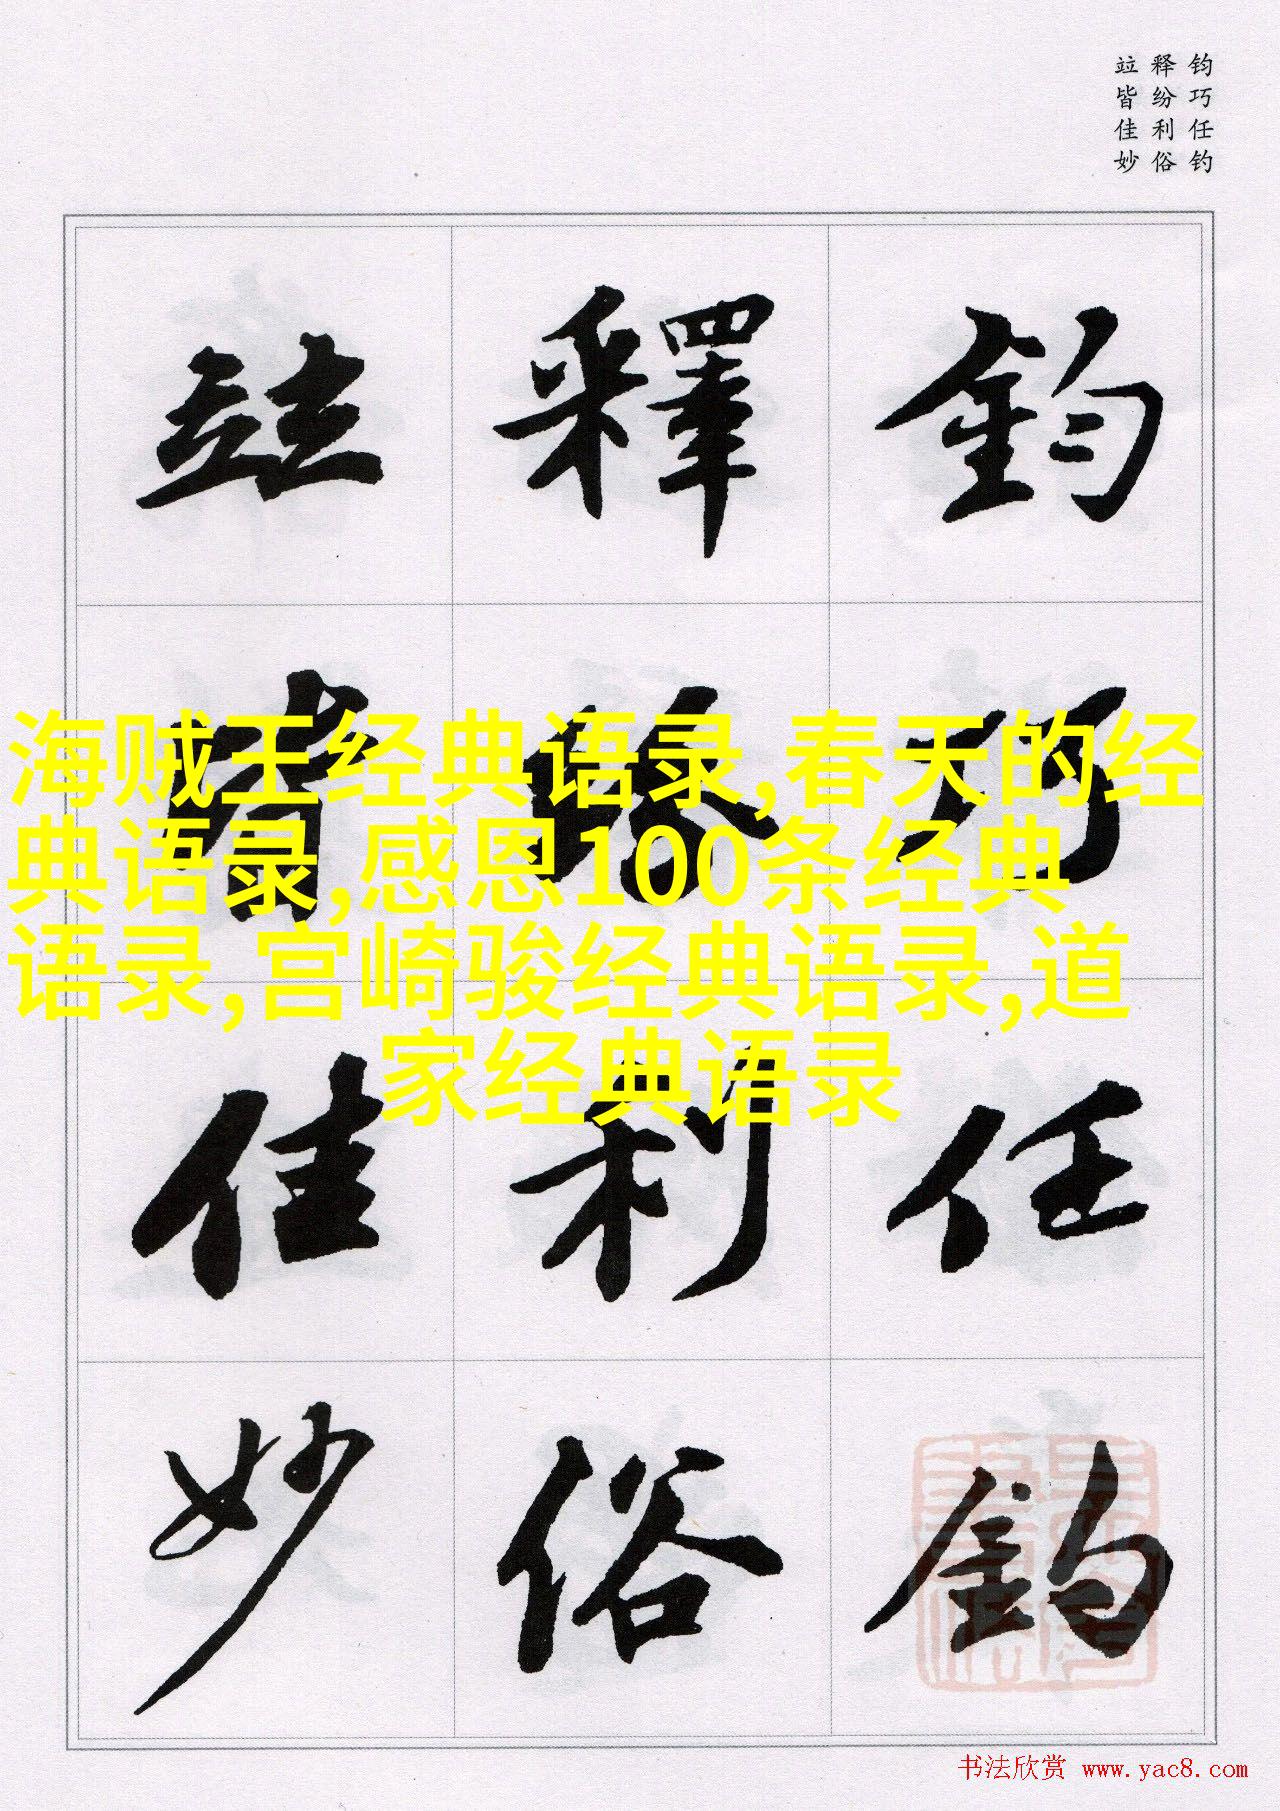 钧巧任钓
释纷利俗
竝皆佳妙
鈞巧任釣
釋紛利俗
竝皆佳妙
海贼王经典语录,春天的经
典语录,感恩100条经典
语录,宫崎骏经典语录,道
家经典语录
书法欣赏 www.yac8.com